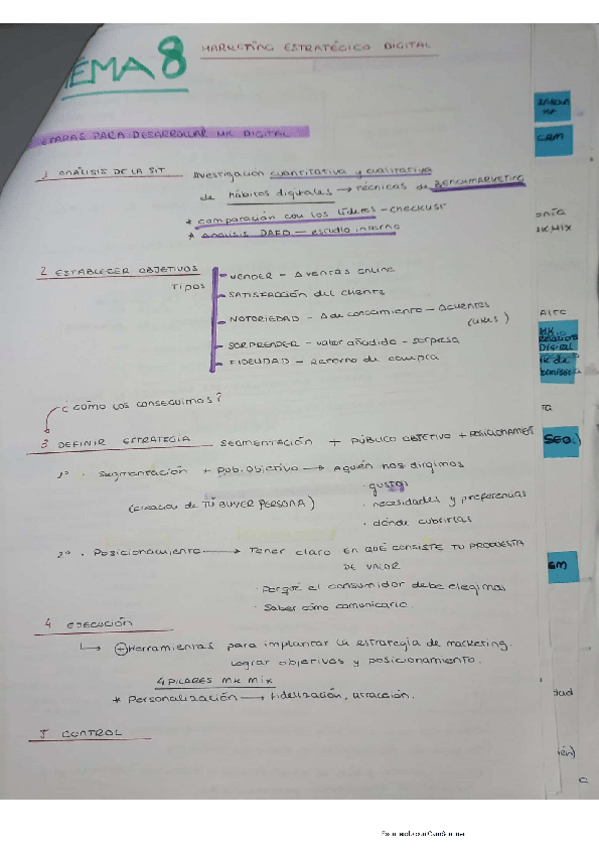 TEMA 8
MARKETING ESTRATÉGICO DIGITAL
ETAPAS PARA DESARROLLAR MK DIGITAL
1 ANÁLISIS DE LA SIT Investigación cuantitativa y cualitativa
de hábitos digitales → técnicas de BENCHMARKETING
* comparación con los líderes - checklist
* Análisis DAFO - estudio interno
2 ESTABLECER OBJETIVOS
TIPOS
- VENDER - Δ ventas online
- SATISFACCIÓN del cliente
- NOTORIEDAD - Δ de conocimiento - Δ clientes
(likes)
- SORPRENDER - valor añadido - sorpresa
- FIDELIDAD - Retorno de compra
¿Cómo los conseguimos?
3 DEFINIR ESTRATEGIA SEGMENTACIÓN + PÚBLICO OBJETIVO + POSICIONAMIENT
1º · Segmentación + Pub. Objetivo → A quién nos dirgimos
· gustos
(CREACIÓN de TÚ BUYER PERSONA) · necesidades y preferencias
· dónde cubrirlas
2º · Posicionamiento → Tener claro EN QUÉ CONSISTE TU PROPUESTA
DE VALOR
· Porqué el consumidor debe elegirnos
· Saber cómo comunicarlo.
4 EJECUCIÓN
↳ ⊕ Herramientas para implantar la estrategia de marketing.
Lograr objetivos y posicionamiento.
4 PILARES MK MIX
* Personalización → fidelización, atracción.
5 CONTROL
CRM
MK MIX
MK
Relacional
Digital
MK de
SEO.)
EM
dad
ién)